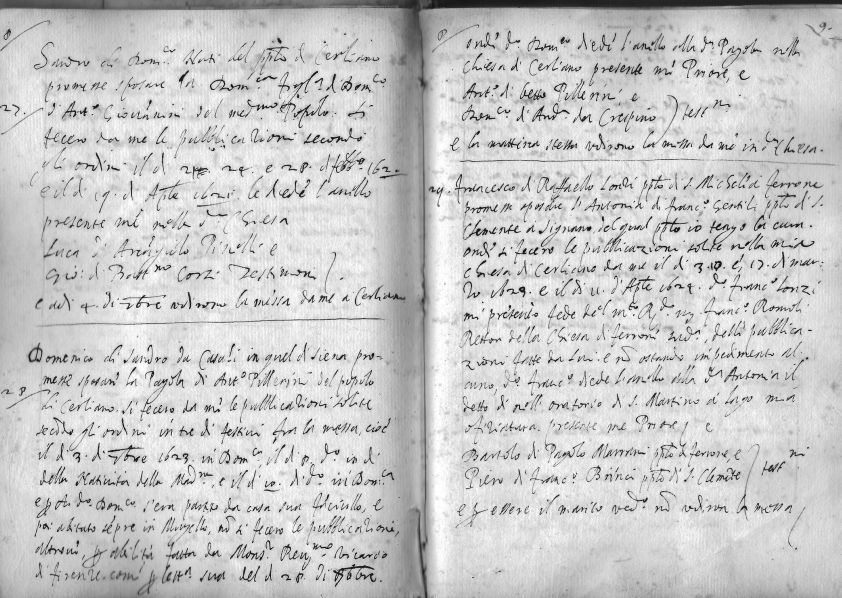 8
Sandro di Dom.co Nati del ppto di Cerliano
promesse sposare la Dom.ca figl.a di Dom.co
27. d'Ant.o Giovannini del med.mo Popolo. Si
fecero da me le pubblicazioni secondo
gli ordini il di 24. e 28. d 162
e il di 19. d'Aple 162 le diede l'anello
presente me nella d.a Chiesa
Luca d' Arcangiolo Pinelli e
Gio: di Batt Corzi Testimoni
e adi 4. di udirono la messa da me a Cerliano
Domenico di Sandro da Casoli in quel di siena pro-
messe sposare la Pagola di Ant.o Pellerini del popolo
28 di Cerliano. Si fecero da me le pubblicazioni solite
secondo gli ordini in tre di festivi fra la messa, cioè
il d 3. di 7bre 1623. in Dom.ca, il d 8. d.o in di
della Natività della Mad.na, e il d 10. di d.o in Dom.ca
e d.o Dom.co s'era partito da casa sua fanciullo, e
poi abitato sepre in Mugello, nō si fecero le pubblicazioni,
altrove, abilità fatta da Mons.r Vicario
di firenze. come sua del d 28. di
8 9.
onde d.o Dom.co diede l'anello alla d.a Pagola nella
Chiesa di Cerliano presente me Priore, e
Ant.o di betto Pellerini e
Dom.co di And.a da Crespino test.ni
e la mattina stessa udirono la messa da me in d.a Chiesa.
29. francesco di Raffaello Lorzi ppto di S. Michel a ferrone
promesse sposare l'Antonia di franc.o Gentili ppto di S.
Clemente a Signano, del qual ppto io tengo la cura.
onde si fecero le pubblicazioni solite nella mia
Chiesa di Cerliano da me il di 3. 10. e 17. di mar-
zo 1624. e il di 11. d'Aple 1624. d.o franc.o Lorzi
mi presentò fede del m.to R.do franc.o Romoli
Rettor della Chiesa di ferrone delle pubblica-
zioni fatte da lui. e nō ostando impedimento al-
cuno, d.o franc.o diede l'anello alla d.a Antonia il
detto di nell oratorio di S. Martino a lago ma
ofiziatura. presente me Priore, e
Bartolo di Pagolo Marrani ppto di ferrone, e
Piero di franc.o ppto di S. Clemēte test.ni
e essere il marito ved.o nō udirono la messa